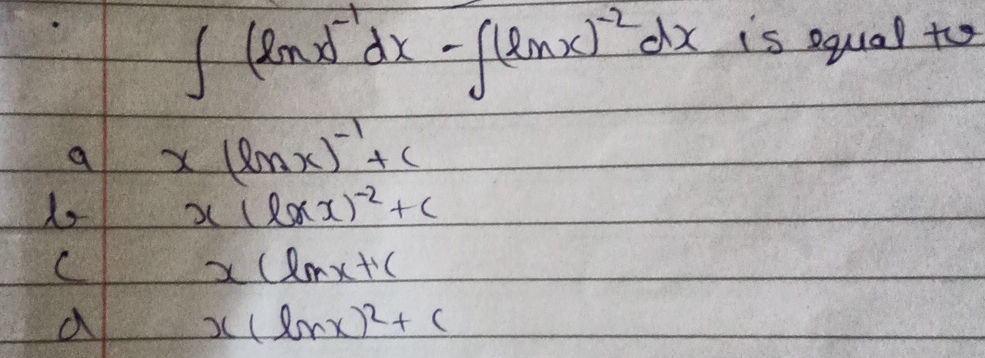 ∫ (lnx)⁻¹ dx - ∫(lnx)⁻² dx is equal to
a x (lnx)⁻¹ + c
b x (lnx)⁻² + c
c x (lnx + c
d x (lnx)² + c